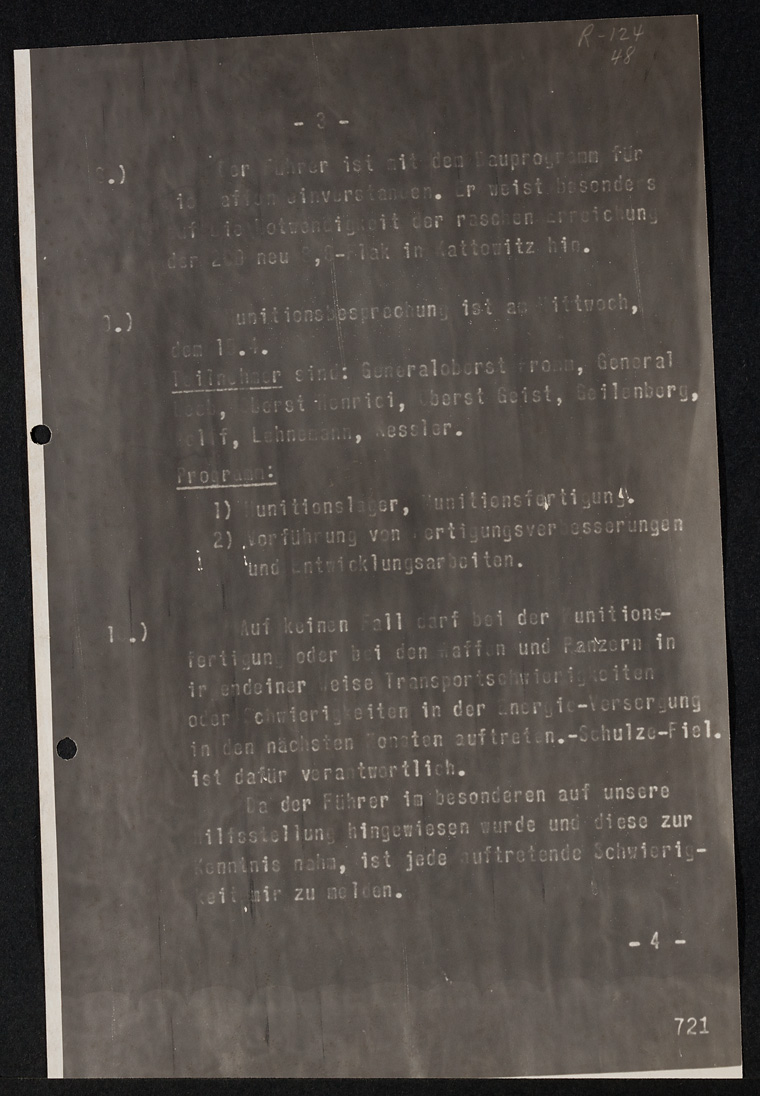 R-124
48
- 3 -
.) Führer ist mit dem Bauprogramm für
einverstanden. Er weist besonders
auf die Notwendigkeit der raschen Erreichung
der neu Flak in Kattowitz hin.
.) Munitionsbesprechung ist am Mittwoch,
dem
Teilnehmer sind: Generaloberst Fromm, General
Oberst Henrici, Oberst Geist, Geilenberg,
Kessler.
Programm:
1) Munitionslager, Munitionsfertigung.
2) Vorführung von Fertigungsverbesserungen
und Entwicklungsarbeiten.
.) Auf keinen Fall darf bei der Munitions-
fertigung oder bei den Waffen und Panzern in
irgendeiner Weise Transportschwierigkeiten
oder Schwierigkeiten in der Energie-Versorgung
in den nächsten Monaten auftreten.-Schulze-Fiel.
ist dafür verantwortlich.
Da der Führer im besonderen auf unsere
Hilfsstellung hingewiesen wurde und diese zur
Kenntnis nahm, ist jede auftretende Schwierig-
keit mir zu melden.
- 4 -
721